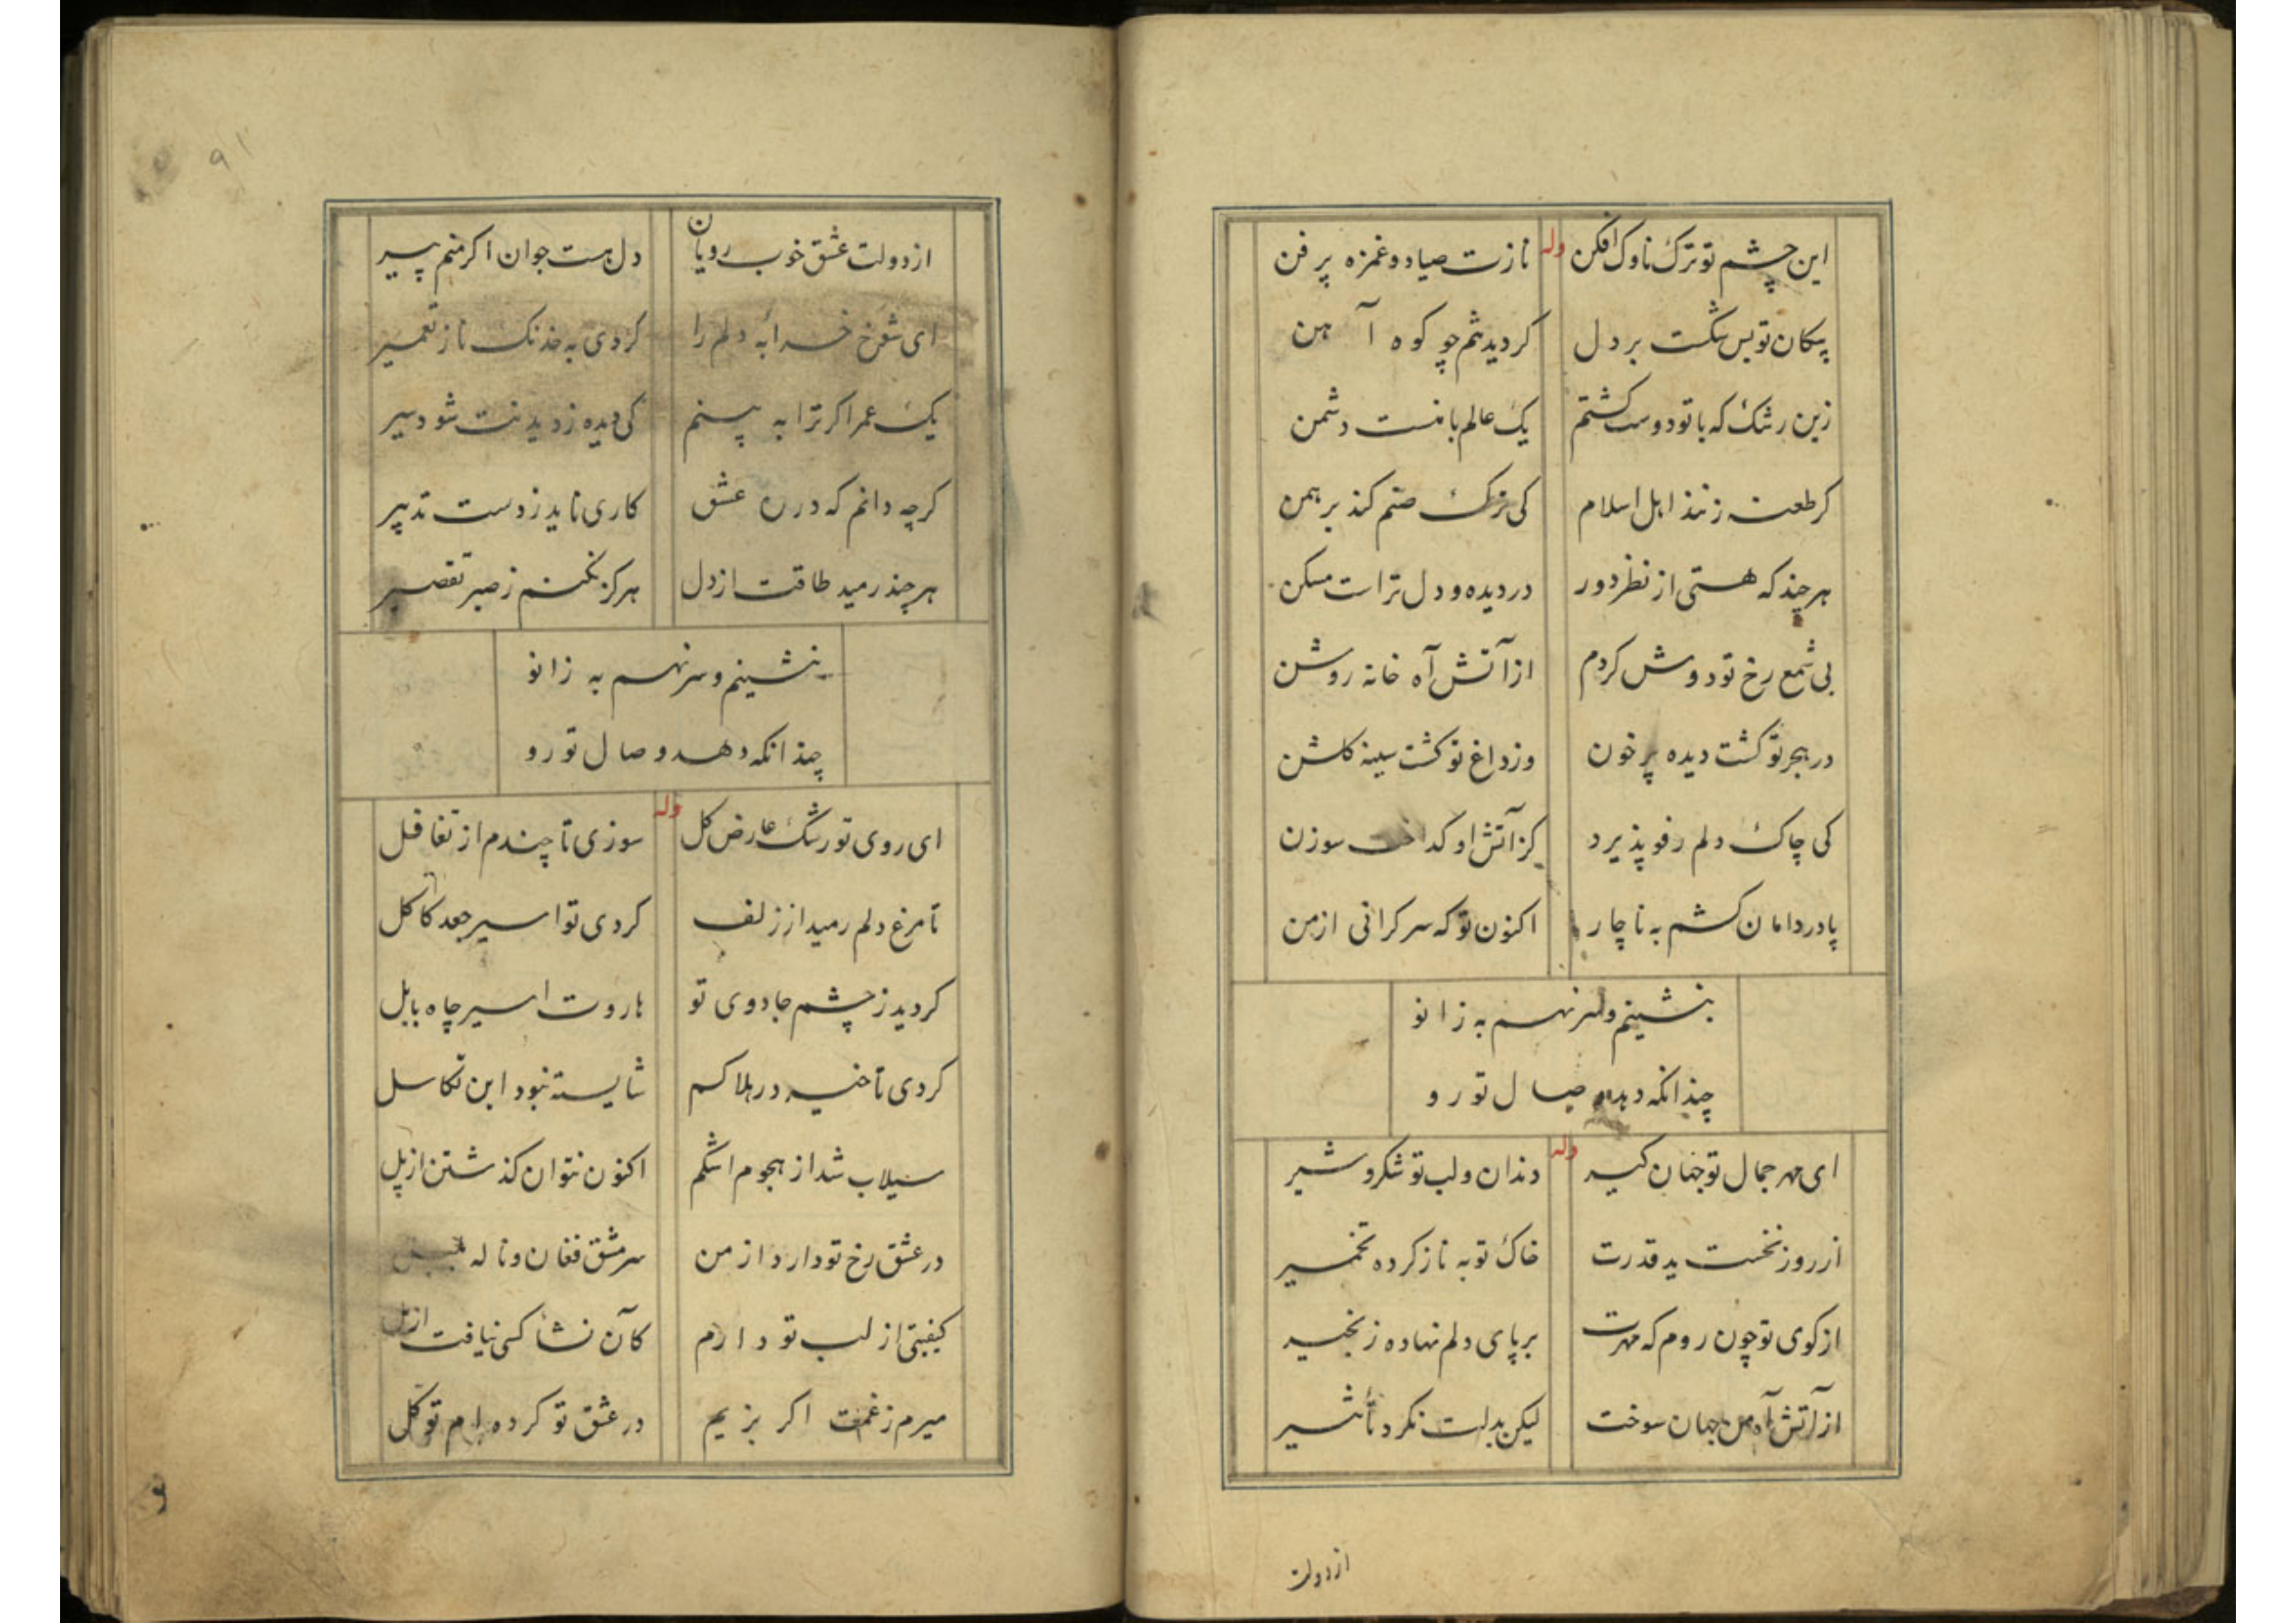 این چشم تو ترک ناوک افکن وله نازت صیاد و غمزه پر فن
پیکان تو بس شکست بر دل کردید تنم چو کوه آهن
زین رشک که با تو دوست کشتم یک عالم با منست دشمن
کر طعنه زنند اهل اسلام کی ترک صنم کند برهمن
هر چند که هستی از نظر دور در دیده و دل تراست مسکن
بی شمع رخ تو دوش کردم از آتش آه خانه روشن
در هجر تو کشت دیده پر خون وز داغ تو کشت سینه کلشن
کی چاک دلم رفو پذیرد کز آتش او کداخت سوزن
پا در دامان کشم به ناچار اکنون تو که سر کرانی از من
بنشینم و سر نهم به زانو
چندانکه دهد وصال تو رو
ای مهر جمال تو جهان کیر وله دندان و لب تو شکر و شیر
از روز نخست ید قدرت خاک تو به ناز کرده تخمیر
از کوی تو چون روم که مهرت بر پای دلم نهاده زنجیر
از آتش آه من جهان سوخت لیکن بدلت نکرد تأثیر
از دولت
۹۱
از دولت عشق خوب رویان دل هست جوان اکر منم پیر
ای شوخ خرابه دلم را کردی به خدنک ناز تعمیر
یک عمر اکر ترا به بینم کی دیده ز دیدنت شود سیر
کرچه دانم که در ره عشق کاری ناید ز دست تدبیر
هر چند رمید طاقت از دل هرکز نکنم ز صبر تقصیر
بنشینم و سر نهم به زانو
چندانکه دهد وصال تو رو
ای روی تو رشک عارض کل وله سوزی تا چندم از تغافل
تا مرغ دلم رمید از زلف کردی تو اسیر جعد کاکل
کردید ز چشم جادوی تو هاروت اسیر چاه بابل
کردی تاخیر در هلاکم شایسته نبود این تکاسل
سیلاب شد از هجوم اشکم اکنون نتوان کذشتن از پل
در عشق رخ تو دارد از من سرمشق فغان و ناله بلبل
کیفیتی از لب تو دارم کآن نشأ کسی نیافت از مل
میرم ز غمت اکر بزیم در عشق تو کرده ام توکل